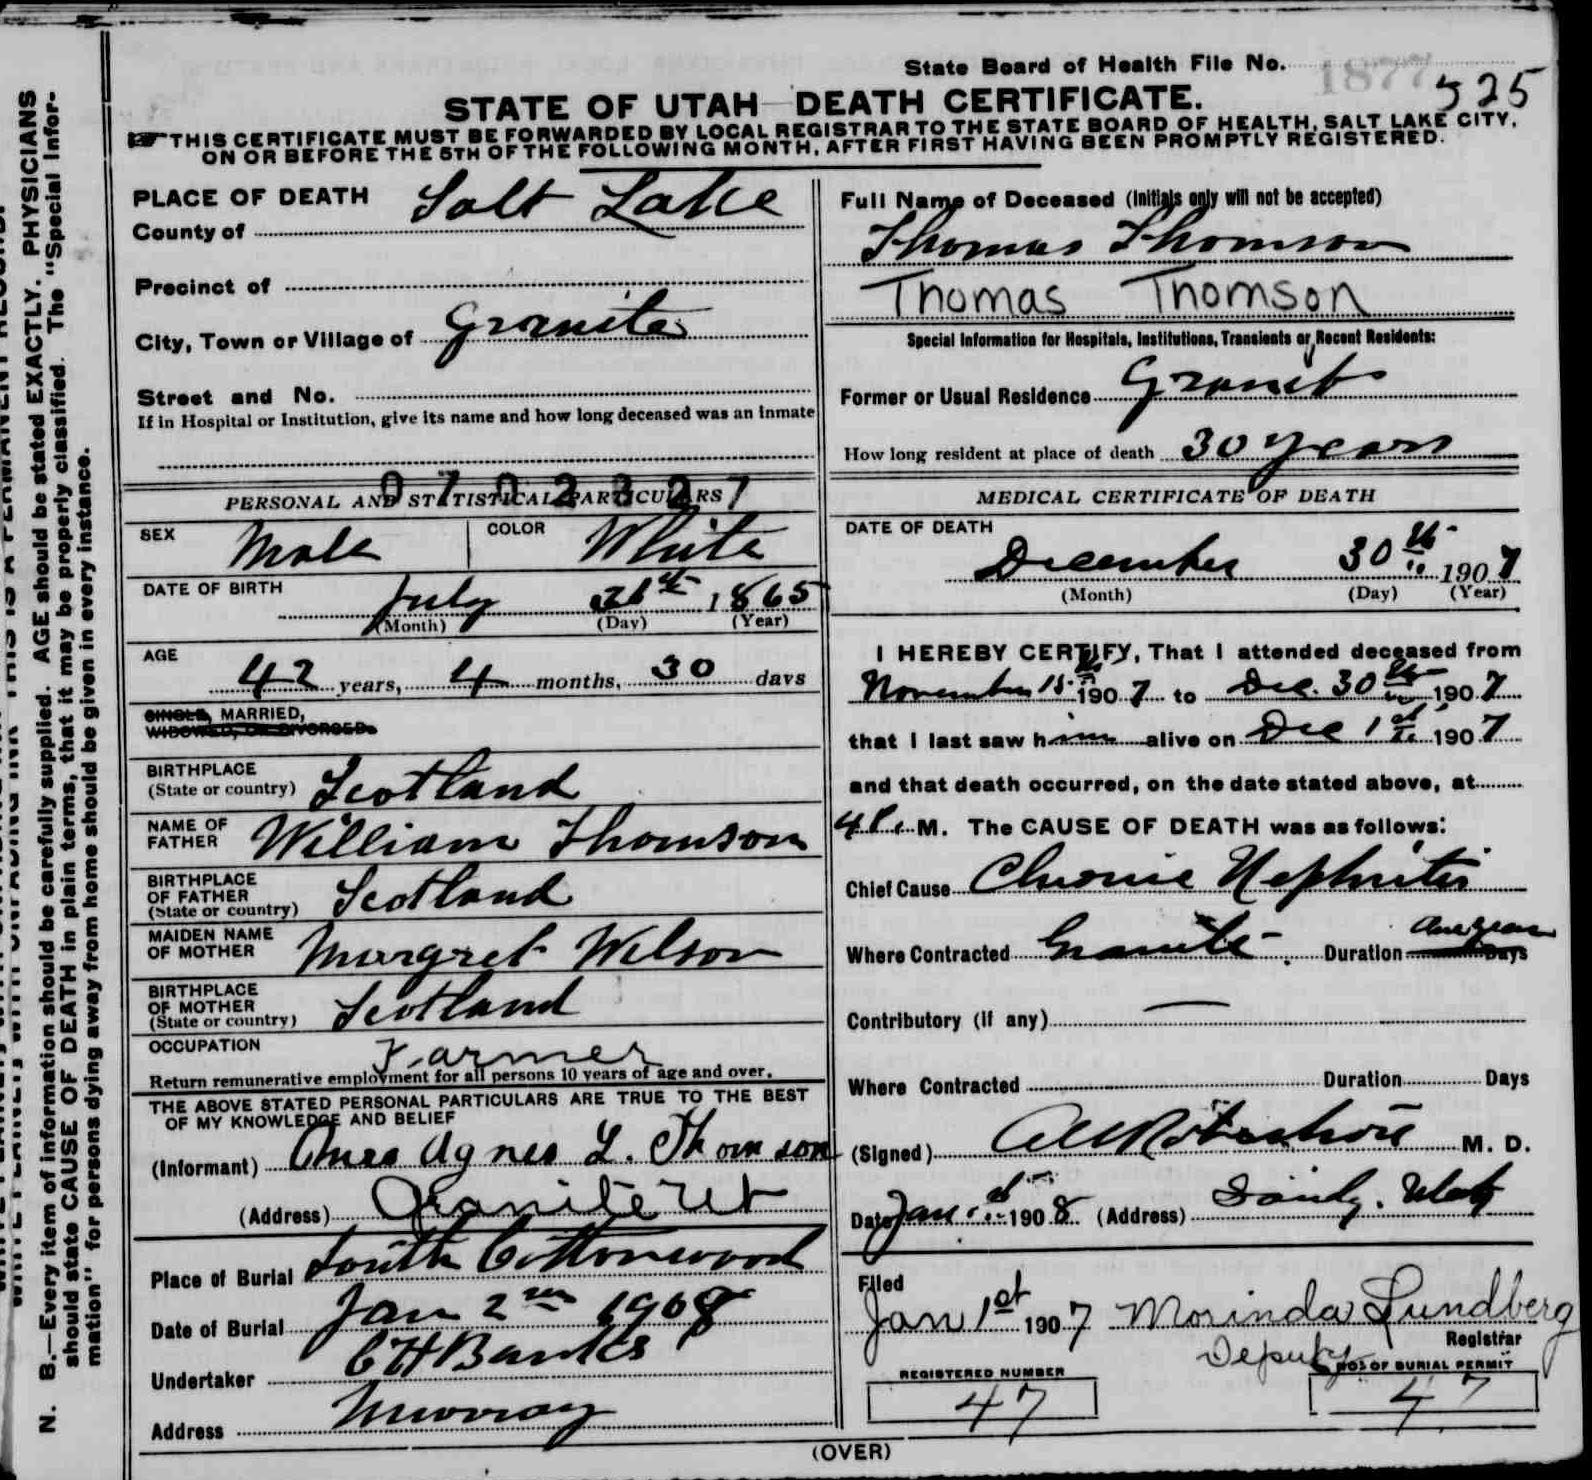 N. B.—Every item of information should be carefully supplied. AGE should be stated EXACTLY. PHYSICIANS
should state CAUSE OF DEATH in plain terms, that it may be properly classified. The "Special Infor-
mation" for persons dying away from home should be given in every instance.
State Board of Health File No. 1877 525
STATE OF UTAH—DEATH CERTIFICATE.
THIS CERTIFICATE MUST BE FORWARDED BY LOCAL REGISTRAR TO THE STATE BOARD OF HEALTH, SALT LAKE CITY,
ON OR BEFORE THE 5TH OF THE FOLLOWING MONTH, AFTER FIRST HAVING BEEN PROMPTLY REGISTERED.
PLACE OF DEATH
County of Salt Lake
Precinct of
City, Town or Village of Granite
Street and No.
If in Hospital or Institution, give its name and how long deceased was an inmate
Full Name of Deceased (Initials only will not be accepted)
Thomas Thomson
Thomas Thomson
Special Information for Hospitals, Institutions, Transients or Recent Residents:
Former or Usual Residence Granite
How long resident at place of death 30 years
PERSONAL AND STATISTICAL PARTICULARS
SEX Male COLOR White
DATE OF BIRTH July 1865
(Month) (Day) (Year)
AGE
42 years, 4 months, 30 days
SINGLE, MARRIED,
WIDOWED, OR DIVORCED.
BIRTHPLACE
(State or country) Scotland
NAME OF
FATHER William Thomson
BIRTHPLACE
OF FATHER
(State or country) Scotland
MAIDEN NAME
OF MOTHER Margret Wilson
BIRTHPLACE
OF MOTHER
(State or country) Scotland
OCCUPATION Farmer
Return remunerative employment for all persons 10 years of age and over.
THE ABOVE STATED PERSONAL PARTICULARS ARE TRUE TO THE BEST
OF MY KNOWLEDGE AND BELIEF
(Informant) Mrs Agnes L. Thomson
(Address) Granite Ut
Place of Burial South Cottonwood
Date of Burial Jan 2nd 1908
Undertaker C H Banks
Address Murray
MEDICAL CERTIFICATE OF DEATH
DATE OF DEATH
December 30th 1907
(Month) (Day) (Year)
I HEREBY CERTIFY, That I attended deceased from
November 15th 1907 to Dec. 30th 1907
that I last saw him alive on Dec 1st 1907
and that death occurred, on the date stated above, at
4 P. M. The CAUSE OF DEATH was as follows:
Chief Cause Chronic Nephritis
Where Contracted Granite Duration One year Days
Contributory (if any) —
Where Contracted Duration Days
(Signed) M. D.
Date Jan 1908 (Address) Sandy, Utah
Filed
Jan 1st 1907 Morinda Lundberg
Deputy Registrar
REGISTERED NUMBER
47
NO. OF BURIAL PERMIT
47
(OVER)